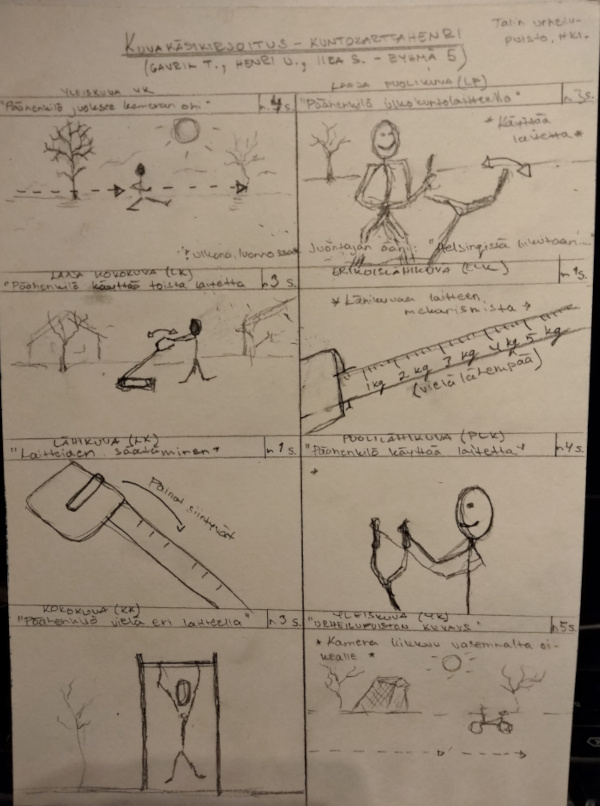 KUVAKÄSIKIRJOITUS - KUNTOKARTTAHENRI
(GAVRIK T., HENRI U., IIRA S. - RYHMÄ 5)
Talin urheilu-
puisto, HKI.
YLEISKUVA YK
"Päähenkilö juoksee kameran ohi."
n. 4 s.
LAAJA PUOLIKUVA (LP)
"Päähenkilö ulkokuntolaitteella"
n. 3 s.
* Käyttää
laitetta *
ulkona, luonnossa
Juontajan ääni: "Helsingissä liikutaan...
LAAJA KOKOKUVA (LK)
"Päähenkilö käyttää toista laitetta
n. 3 s.
ERIKOISLÄHIKUVA (ELK)
n. 1 s.
* Lähikuvaa laitteen
mekanismista *
1 kg 2 kg 3 kg 4 kg 5 kg
(vielä lähempää)
LÄHIKUVA (LK)
"Laitteiden säätäminen"
n. 1 s.
Painot siirtyvät
PUOLILÄHIKUVA (PLK)
"Päähenkilö käyttää laitetta"
n. 4 s.
KOKOKUVA (KK)
"Päähenkilö vielä eri laitteella"
n. 3 s.
YLEISKUVA (YK)
"URHEILUPUISTON KUVAUS"
n. 5 s.
* Kamera liikkuu vasemmalta oi-
kealle *